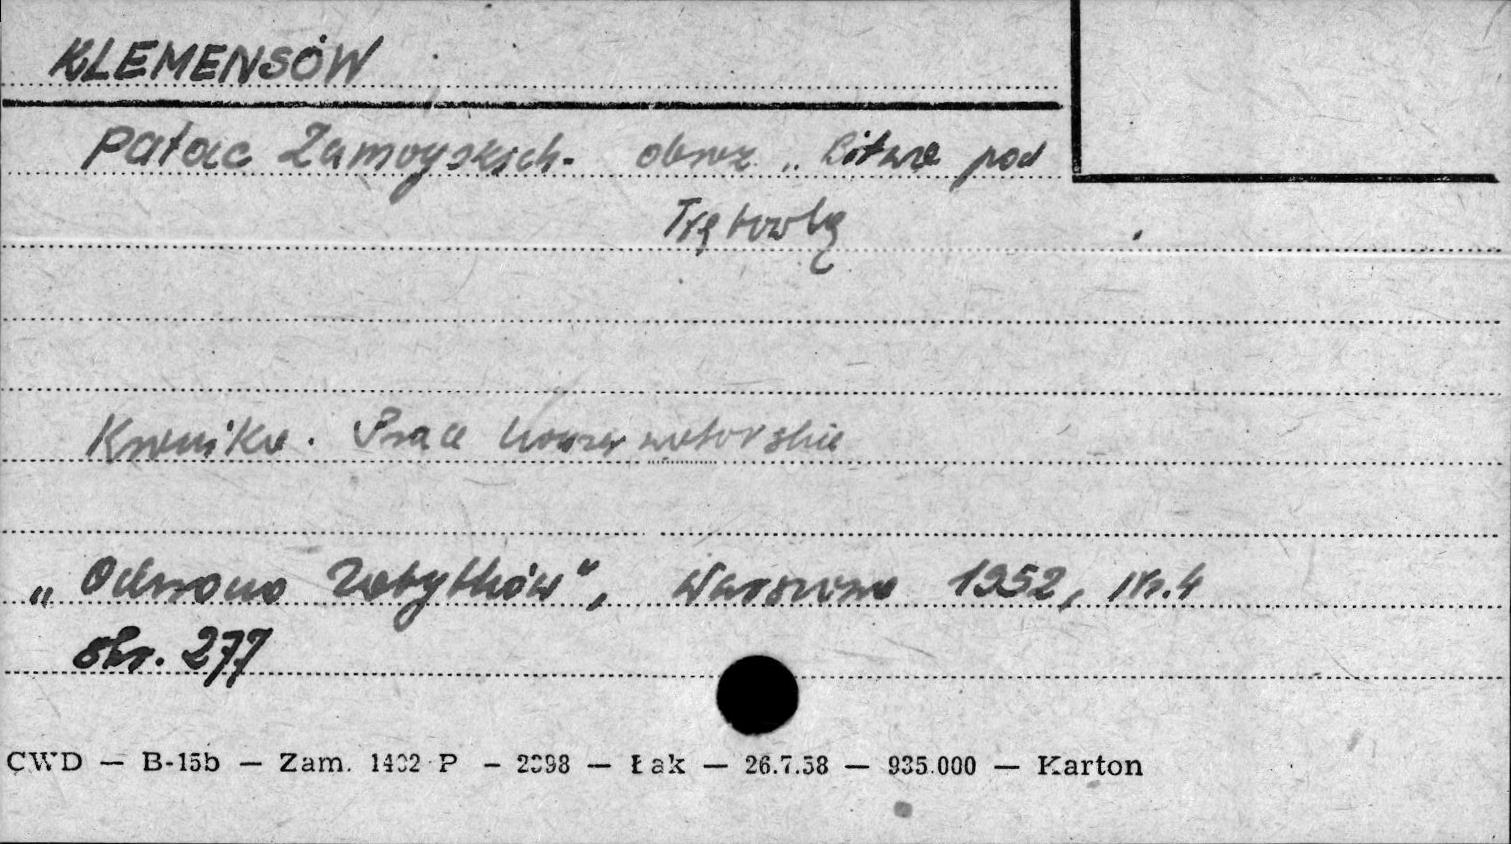 KLEMENSÓW
Pałac Zamoyskich. obraz „Bitwa pod
Trębowlą
Kronika. Prace konserwatorskie
„Ochrona Zabytków", Warszawa 1952, nr. 4
str. 277
CWD — B-15b — Zam. 1402 P — 2398 — Łak — 26.7.58 — 935.000 — Karton